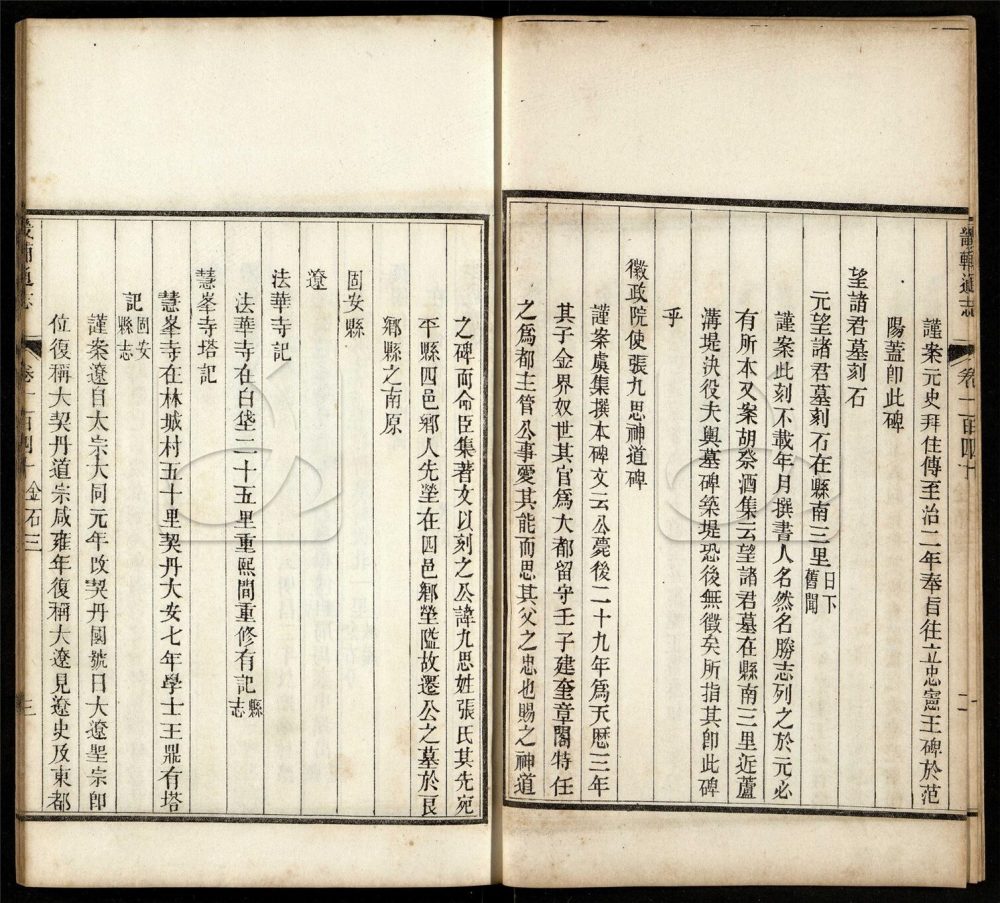 畿輔通志
卷一百四十
二
謹案元史拜住傳至治二年奉旨往立忠憲王碑於范
陽蓋卽此碑
望諸君墓刻石
元望諸君墓刻石在縣南三里日下舊聞
謹案此刻不載年月撰書人名然名勝志列之於元必
有所本又案胡祭酒集云望諸君墓在縣南三里近蘆
溝堤決役夫輿墓碑築堤恐後無徵矣所指其卽此碑
乎
徽政院使張九思神道碑
謹案虞集撰本碑文云公薨後二十九年爲天厯三年
其子金界奴世其官爲大都留守壬子建奎章閣特任
之爲都主管公事愛其能而思其父之忠也賜之神道
之碑而命臣集著文以刻之公諱九思姓張氏其先宛
平縣四邑鄕人先塋在四邑鄕塋隘故遷公之墓於良
鄕縣之南原
固安縣
遼
法華寺記
法華寺在白垡二十五里重熙間重修有記縣志
慧峯寺塔記
慧峯寺在林城村五十里契丹大安七年學士王鼎有塔
記固安縣志
謹案遼自大宗大同元年改契丹國號曰大遼聖宗卽
位復稱大契丹道宗咸雍年復稱大遼見遼史及東都
畿輔通志
卷一百四十 金石三
三